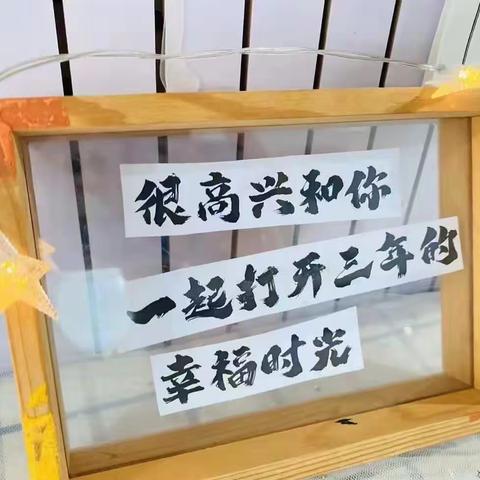 很高兴和你
一起打开三年的
幸福时光